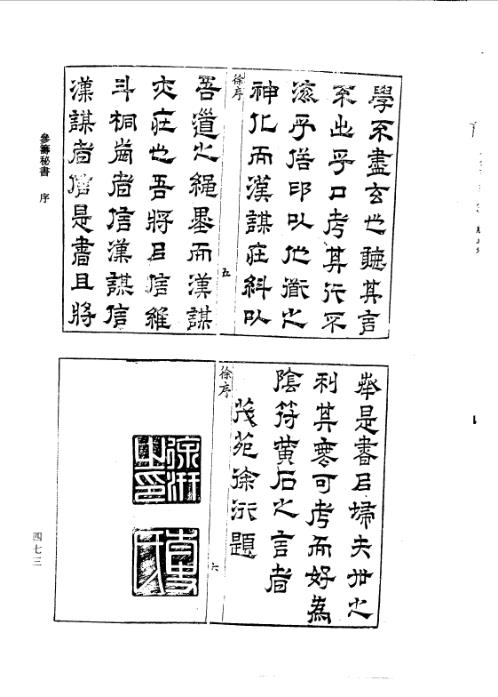 學不盡玄也聽其言
不出乎口考其行不
乎以他之
神化而漢謀在糾以
徐序
五
吾道之繩墨而漢謀
在也吾將㠯信維
斗桐者信漢謀信
漢謀者信是書且將
舉是書㠯歸夫世之
利其可考而好為
陰符黃石之言者
徐序
六
茂苑徐汧題
徐汧之印
太史氏
參籌秘書 序
四七三